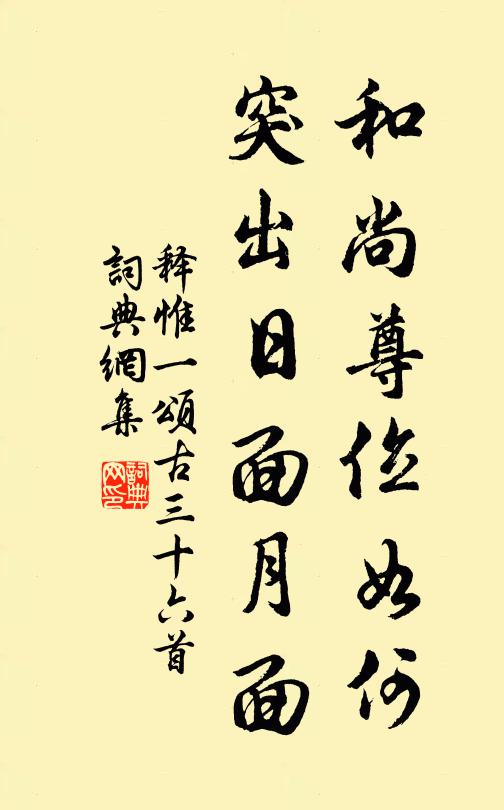 和尚尊位如何
突出日面月面
释惟一頌古三十六首
詞典網集
詞典网印